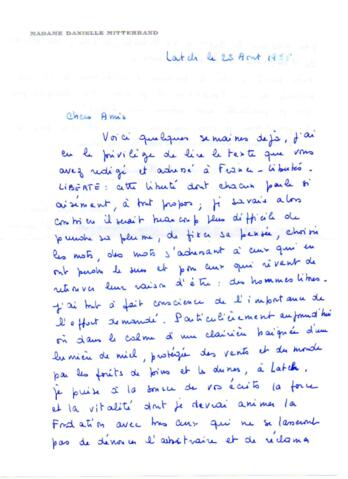 MADAME DANIELLE MITTERRAND
Latch le 23 Aout
Chers Amis
Voici quelques semaines dejà, j'ai
eu le privilège de lire le texte que vous
avez redigé et adressé à France-libertés.
LIBERTÉ : cette liberté dont chacun parle si
aisément, à tout propos ; je savais alors
combien il serait beaucoup plus difficile de
prendre sa plume, de fixer sa pensée, choisir
les mots, des mots s'adressant à ceux qui en
ont perdu le sens et pour ceux qui rêvent de
retrouver leur raison d'être : des hommes libres.
j'ai tout à fait conscience de l'importance de
l'effort demandé. Particulièrement aujourd'hui
où dans le calme d'une clairière baignée d'une
lumière de miel, protégée des vents et du monde
par les forêts de pins et les dunes, à Latch.
je puise à la source de vos écrits la force
et la vitalité dont je devrai animer la
Fondation avec tous ceux qui ne se lasseront
pas de dénoncer l'arbitraire et de réclamer